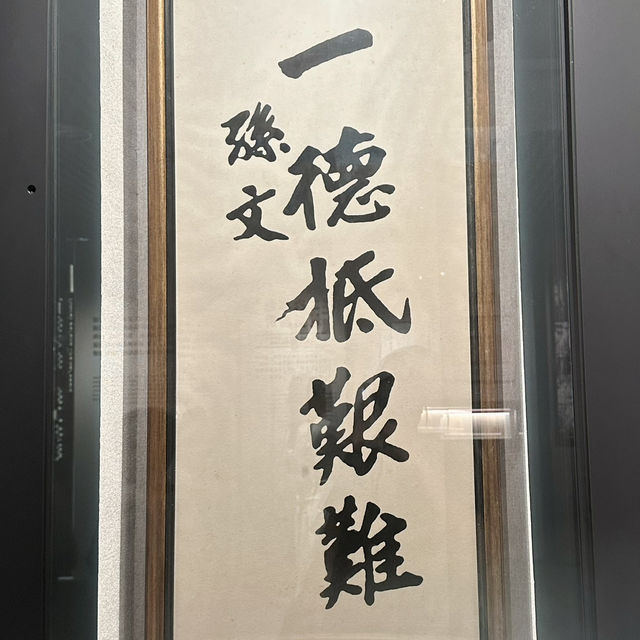 一德抵艱難
孫文